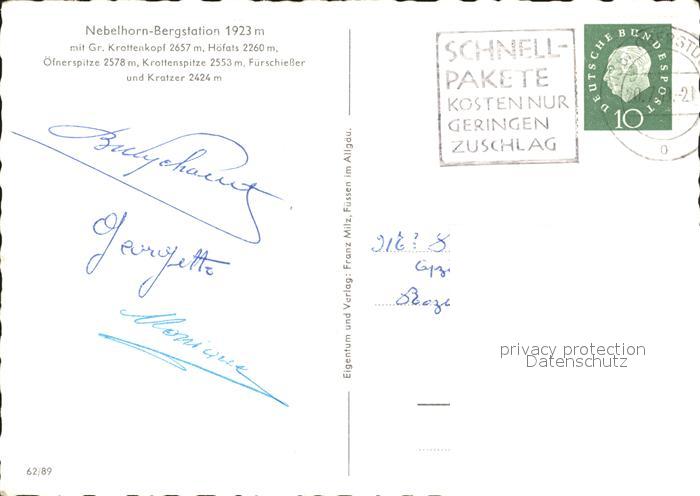 Nebelhorn-Bergstation 1923 m
mit Gr. Krottenkopf 2657 m, Höfats 2260 m,
Öfnerspitze 2578 m, Krottenspitze 2553 m, Fürschießer
und Kratzer 2424 m
SCHNELL-
PAKETE
KOSTEN NUR
GERINGEN
ZUSCHLAG
DEUTSCHE BUNDESPOST
10
Georgette
Monique
Eigentum und Verlag: Franz Milz, Füssen im Allgäu.
privacy protection
Datenschutz
62/89